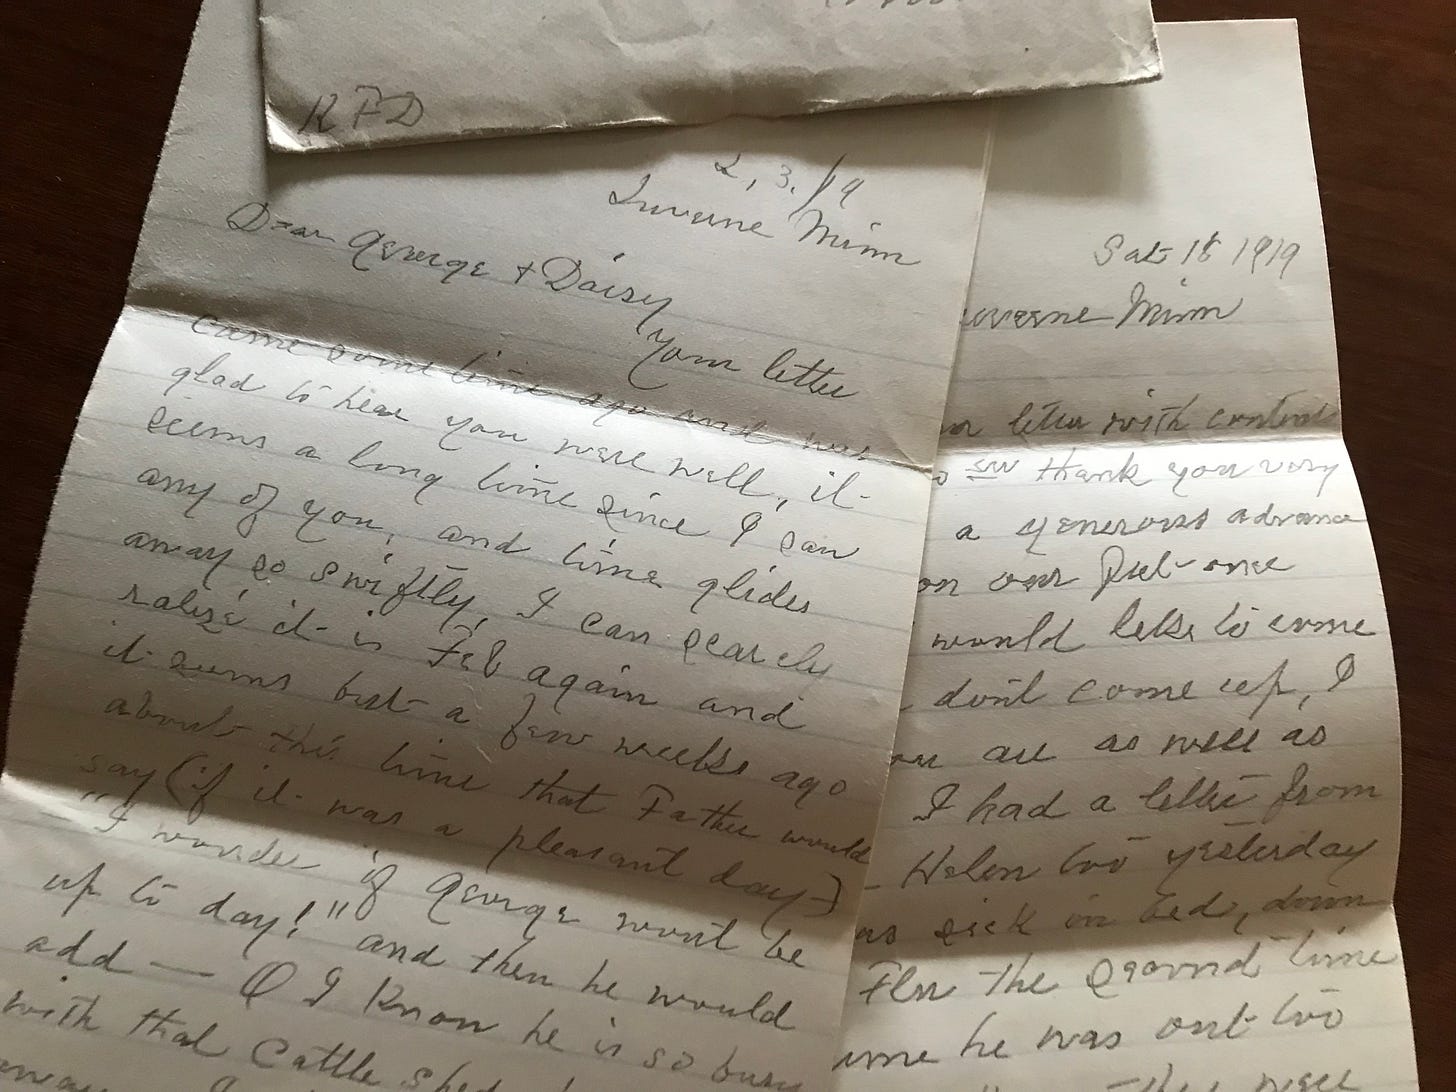 R F D
2, 3, 19
Luverne Minn
Dear George + Daisy
Your letter
came some time ago and was
glad to hear you were well, it
seems a long time since I saw
any of you, and time glides
away so swiftly, I can scarcely
ralize it is Feb again and
it seems but a few weeks ago
about this time that Father would
say (if it was a pleasant day)
"I wonder if George won't be
up to day!" and then he would
add — O I know he is so busy
with that cattle shed
Sat 18 1919
uverne Minn
letter with
thank you very
a generous advance
on our
would like to come
dont come up, I
are as well as
I had a letter from
Helen too yesterday
as sick in bed, down
Flu the second time
ime he was out too